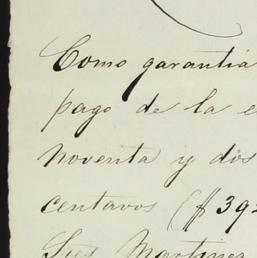 Como garantia
pago de la e
noventa y dos
centavos ($ 392
Martinez